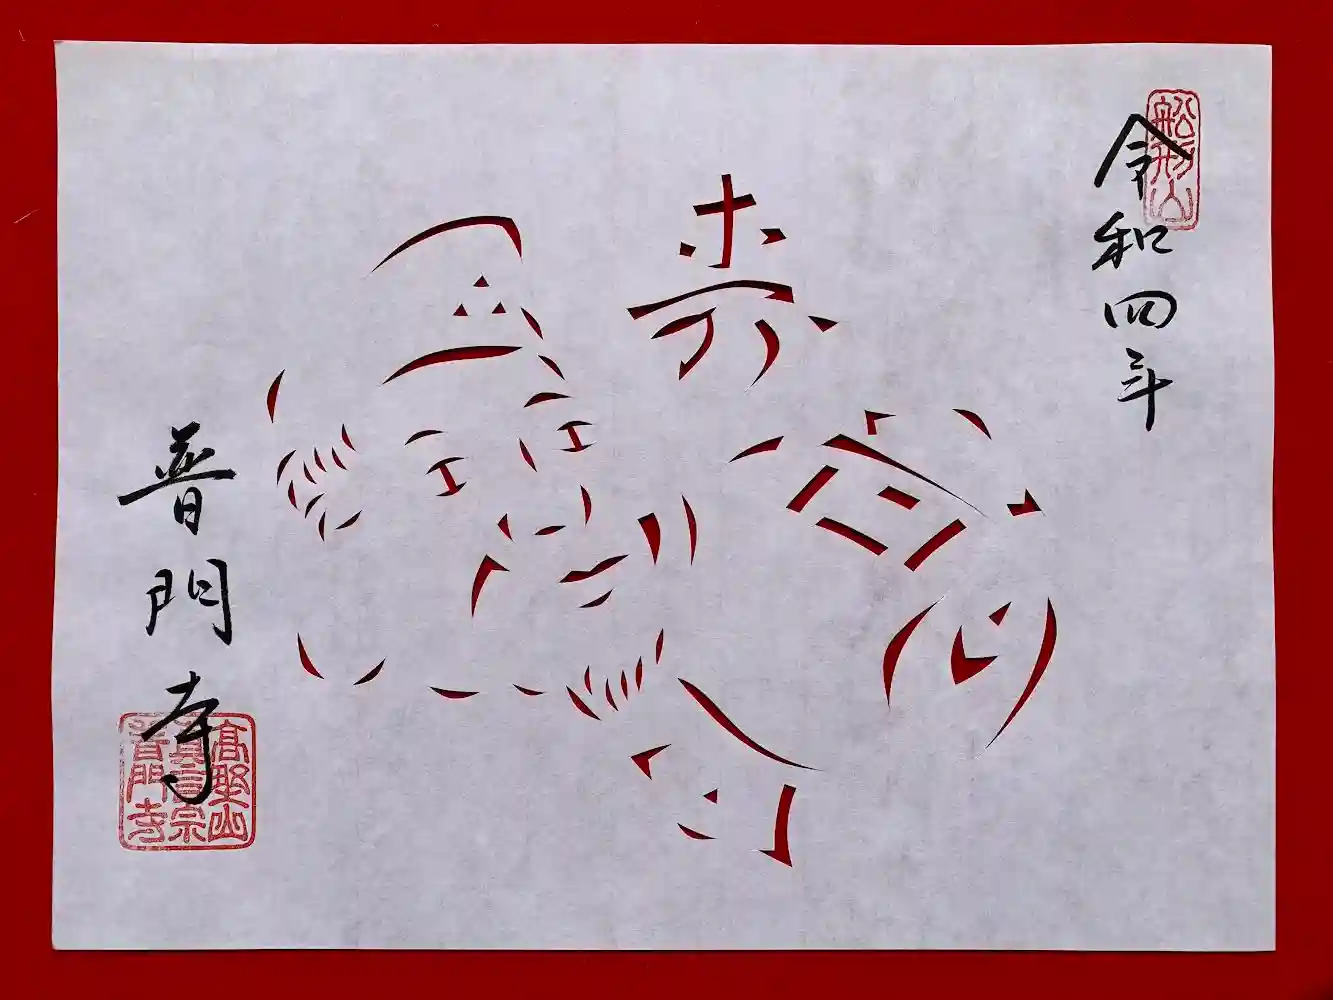 令和四年
船形山
普門寺
高野山
真言宗
普門寺